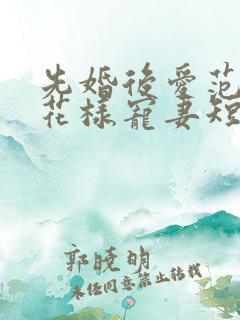 先婚後愛范
花樣寵妻短
郭曉明
未经同意禁止转载